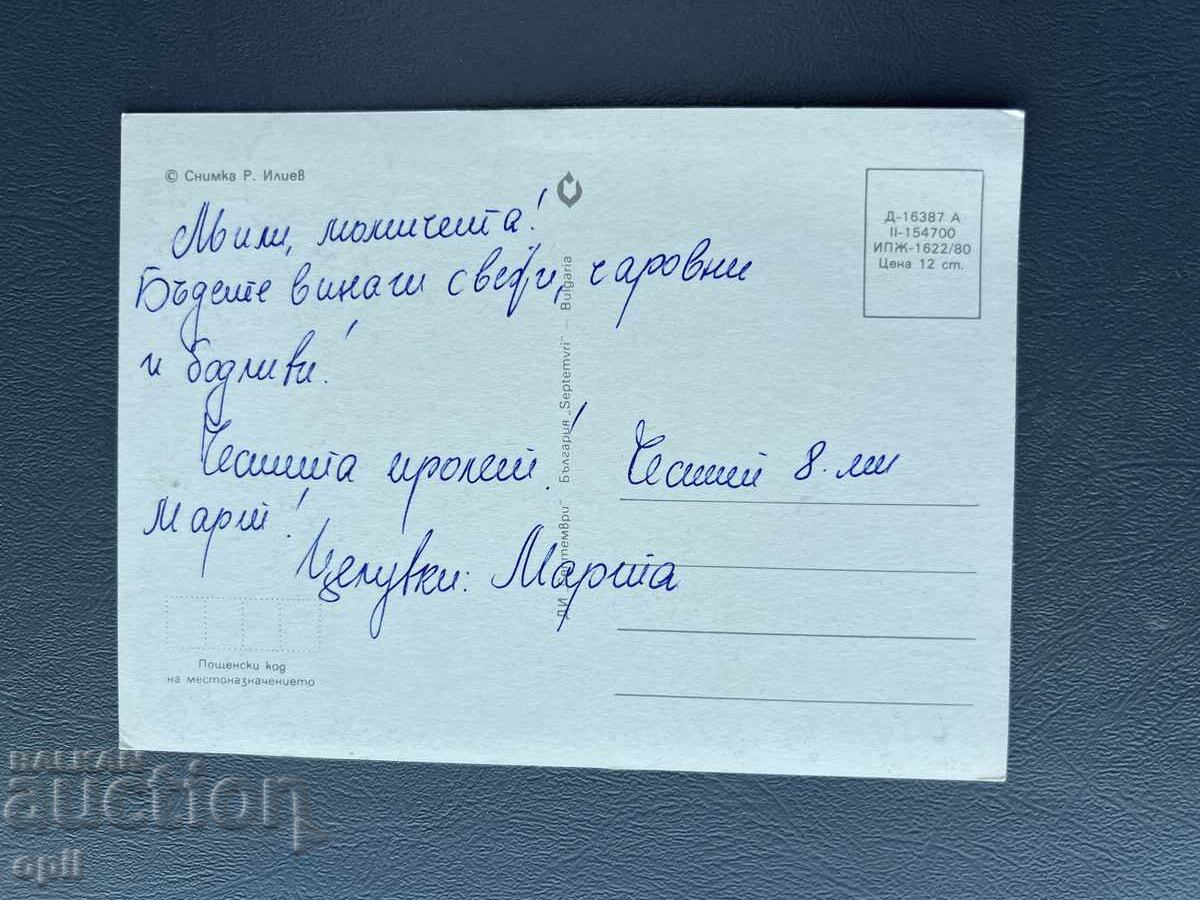 © Снимка Р. Илиев
Д-16387 А
II-154700
ИПЖ-1622/80
Цена 12 ст.
Мили, момичета!
Бъдете винаги свежи, чаровни
и бодливи!
Честита пролет! Честит 8.ми
Март!
Целувки: Марта
ДИ „Септември" България „Septemvri" – Bulgaria
Пощенски код
на местоназначението
BALKAN
auction
opll